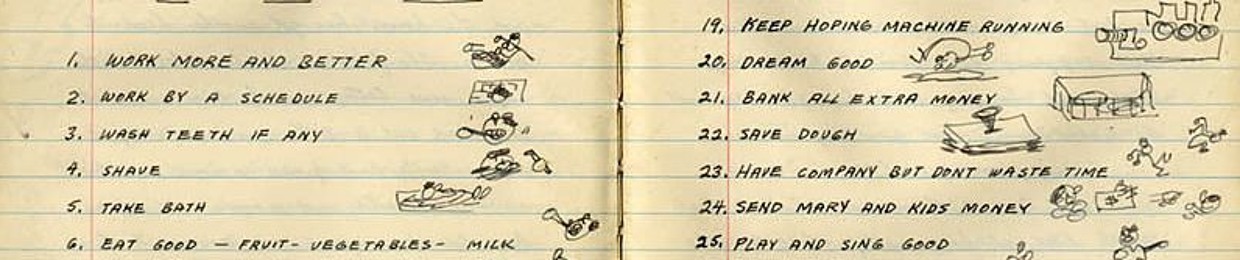 1. WORK MORE AND BETTER
2. WORK BY A SCHEDULE
3. WASH TEETH IF ANY
4. SHAVE
5. TAKE BATH
6. EAT GOOD — FRUIT - VEGETABLES - MILK
19. KEEP HOPING MACHINE RUNNING
20. DREAM GOOD
21. BANK ALL EXTRA MONEY
22. SAVE DOUGH
23. HAVE COMPANY BUT DONT WASTE TIME
24. SEND MARY AND KIDS MONEY
25. PLAY AND SING GOOD